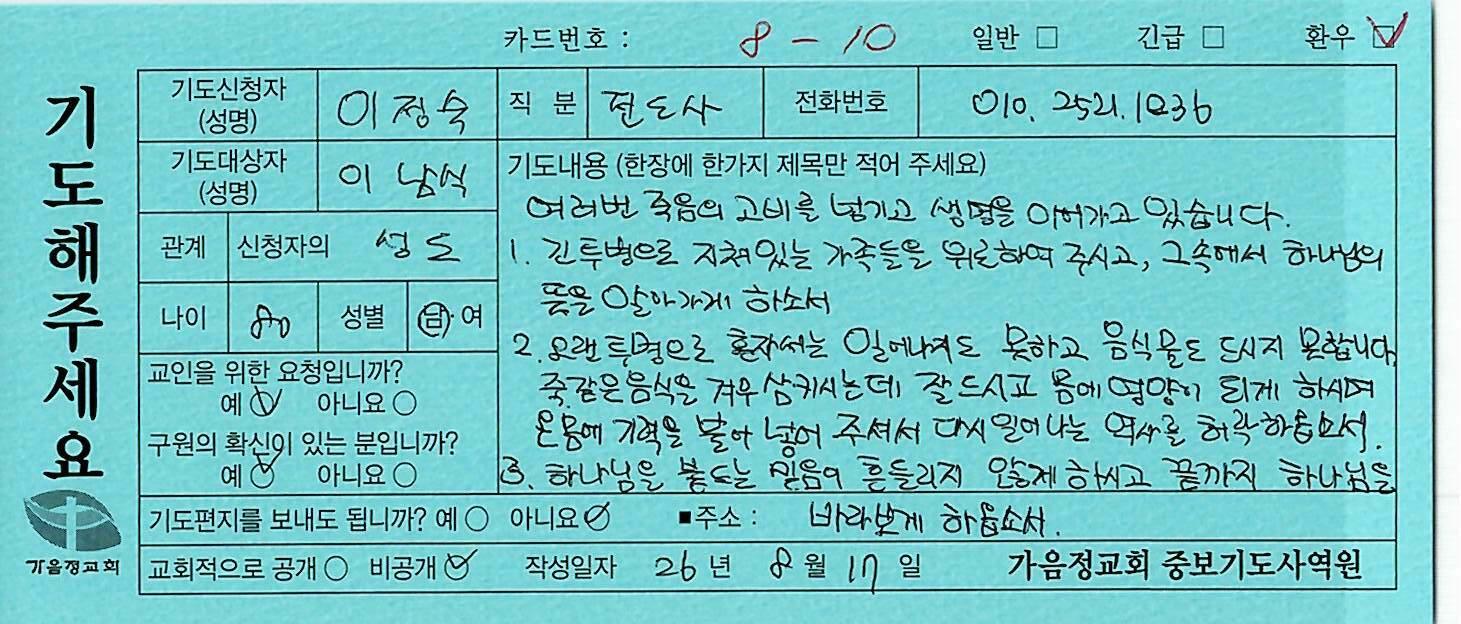 카드번호 : 8 - 10 일반 □ 긴급 □ 환우 ☑
기도해주세요
기도신청자 (성명) 이정숙 직 분 전도사 전화번호 010. 2521. 1036
기도대상자 (성명) 이남식
관계 신청자의 성도
나이 80 성별 남·여
교인을 위한 요청입니까?
예 ☑ 아니요 ○
구원의 확신이 있는 분입니까?
예 ☑ 아니요 ○
기도내용 (한장에 한가지 제목만 적어 주세요)
여러번 죽음의 고비를 넘기고 생명을 이어가고 있습니다.
1. 긴투병으로 지쳐있는 가족들을 위로하여 주시고, 그속에서 하나님의
뜻을 알아가게 하소서
2. 오랜 투병으로 혼자서는 일어나지도 못하고 음식물도 드시지 못합니다
죽같은음식을 겨우 삼키시는데 잘드시고 몸에 영양이 되게 하시며
온몸에 기력을 불어 넣어 주셔서 다시일어나는 역사를 허락하옵소서.
3. 하나님을 붙드는 믿음이 흔들리지 않게 하시고 끝까지 하나님을
기도편지를 보내도 됩니까? 예 ○ 아니요 ☑ ■주소 : 바라보게 하옵소서.
교회적으로 공개 ○ 비공개 ☑ 작성일자 26 년 8 월 17 일 가음정교회 중보기도사역원
가음정교회